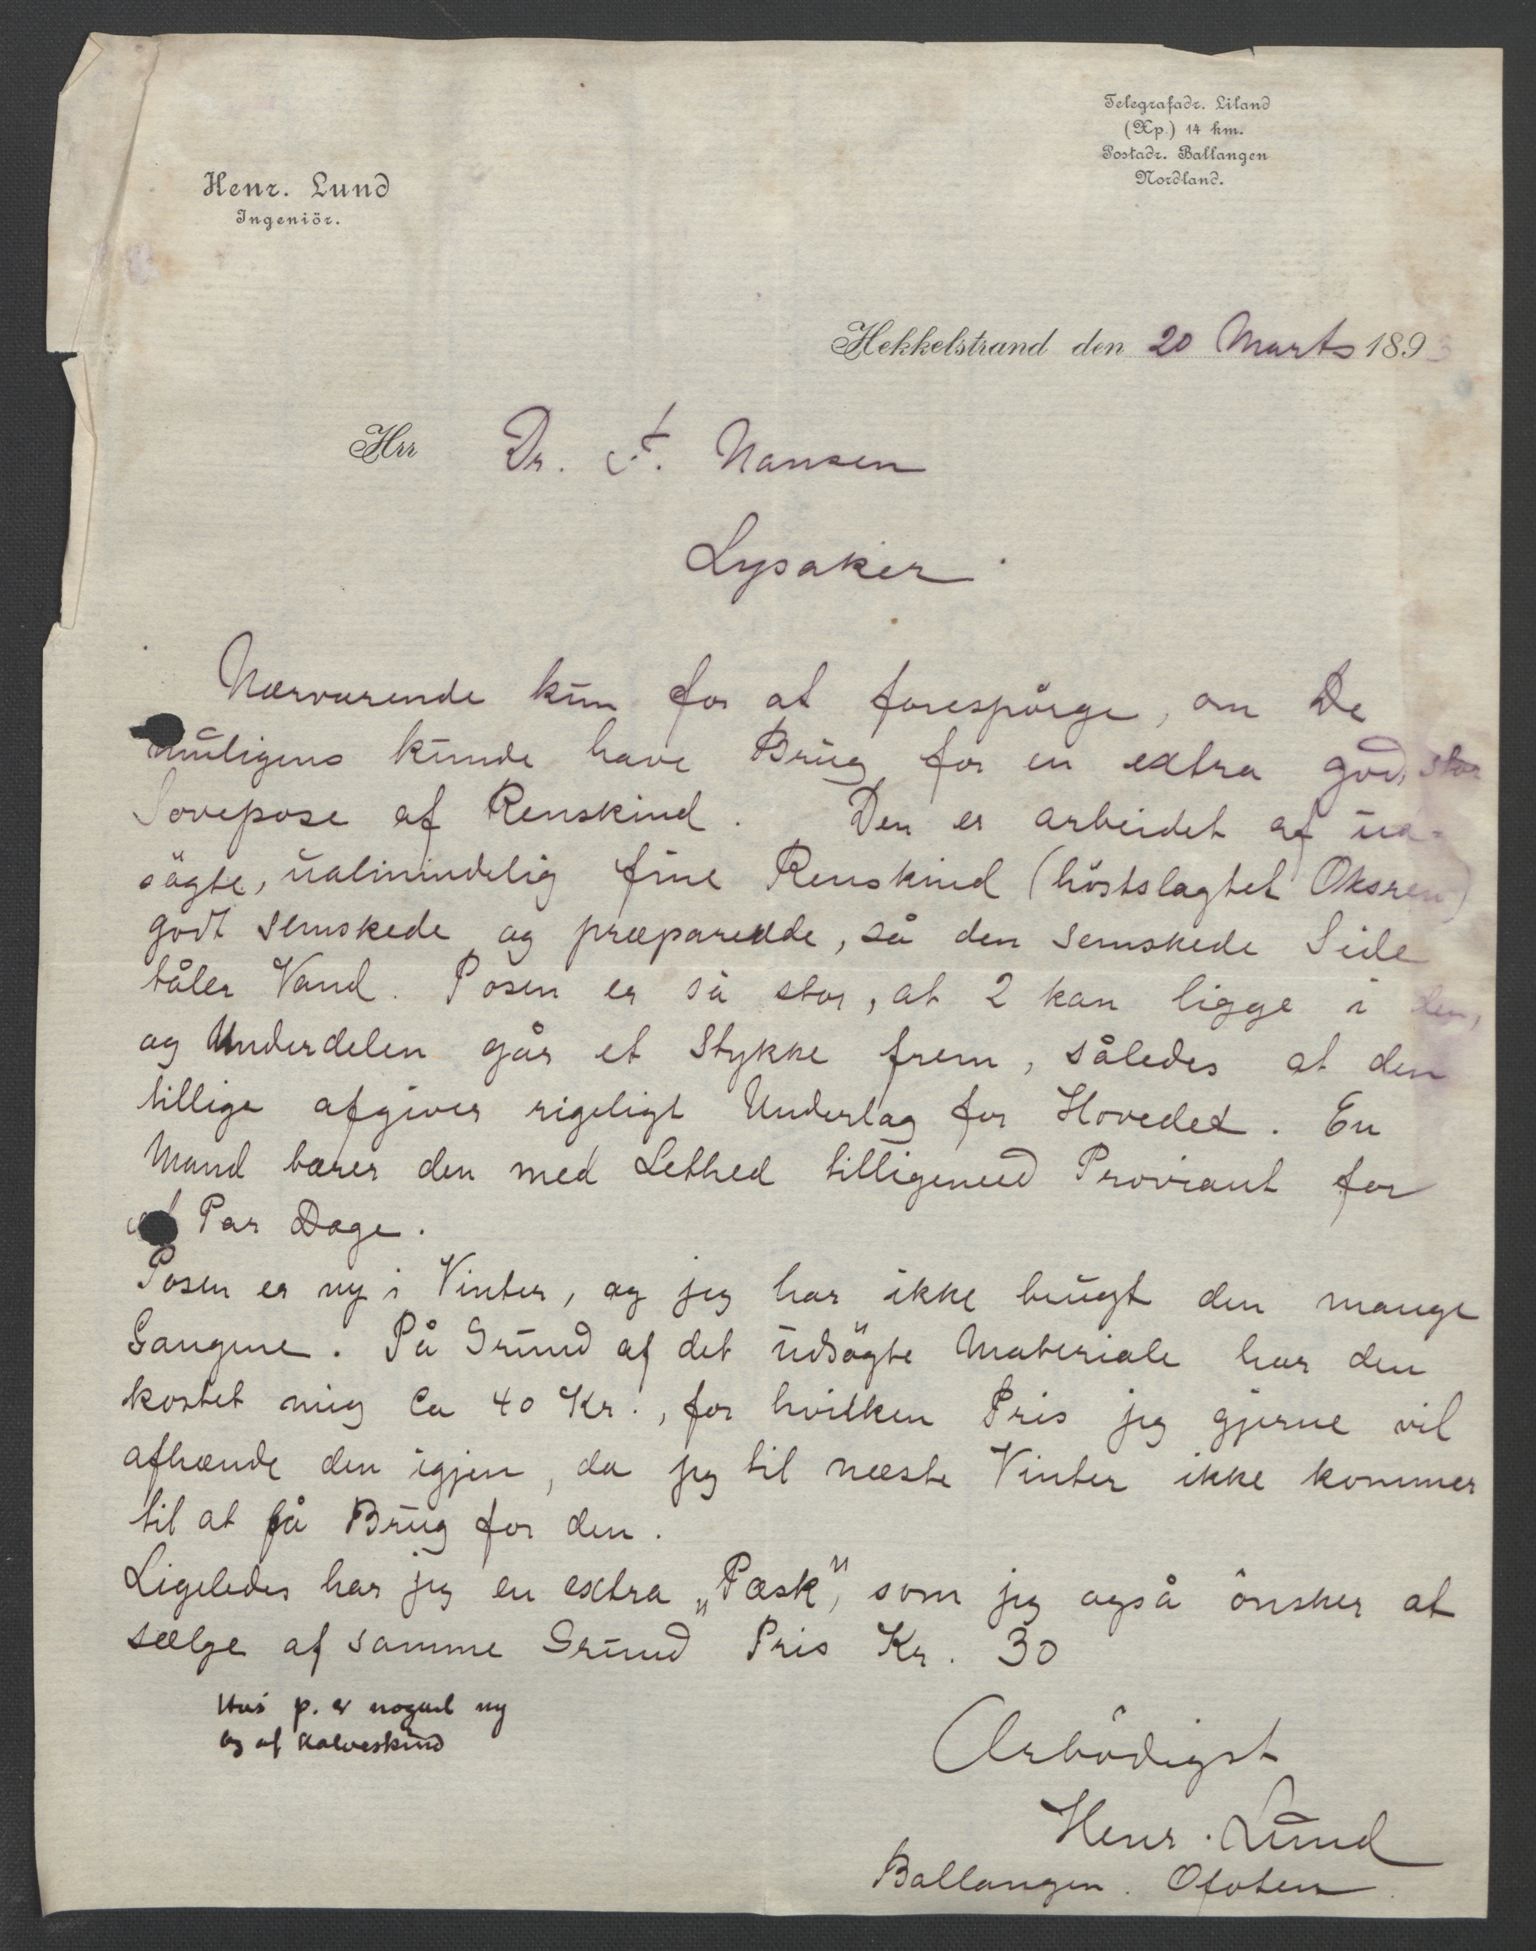 Telegrafadr. Liland
(Xp.) 14 km.
Postadr. Ballangen
Nordland.
Henr. Lund
Ingeniör.
Hekkelstrand den 20 Marts 1893
Hrr Dr. F. Nansen
Lysaker.
Nærværende kun for at forespörge, om De
muligens kunde have Brug for en extra god, stor
Sovepose af Renskind. Den er arbeidet af ud-
sögte, ualmindelig fine Renskind (höstslagtet Oksren)
godt semskede og præparedde, så den semskede Side
tåler Vand. Posen er så stor, at 2 kan ligge i den,
og Underdelen går et Stykke frem, således at den
tillige afgiver rigeligt Underlag for Hovedet. En
Mand bærer den med Lethed tilligemed Proviant for
et Par Dage.
Posen er ny i Vinter, og jeg har ikke brugt den mange
Gangene. På Grund af det udsögte Materiale har den
kostet mig Ca 40 Kr., for hvilken Pris jeg gjerne vil
afhænde den igjen, da jeg til næste Vinter ikke kommer
til at få Brug for den.
Ligeledes har jeg en extra „Pæsk", som jeg også önsker at
sælge af samme Grund Pris Kr. 30
p. er noget ny
og af Kalveskind
Ærbödigst
Henr. Lund
Ballangen. Ofoten